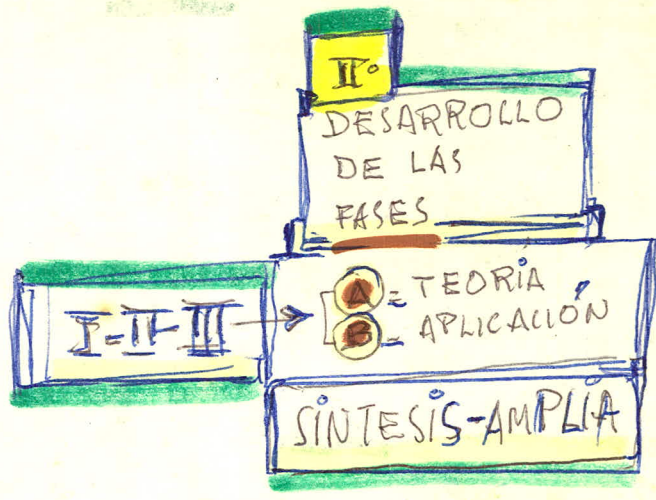 II.
DESARROLLO
DE LAS
FASES
I-II-III → A = TEORÍA
B = APLICACIÓN
SÍNTESIS-AMPLIA